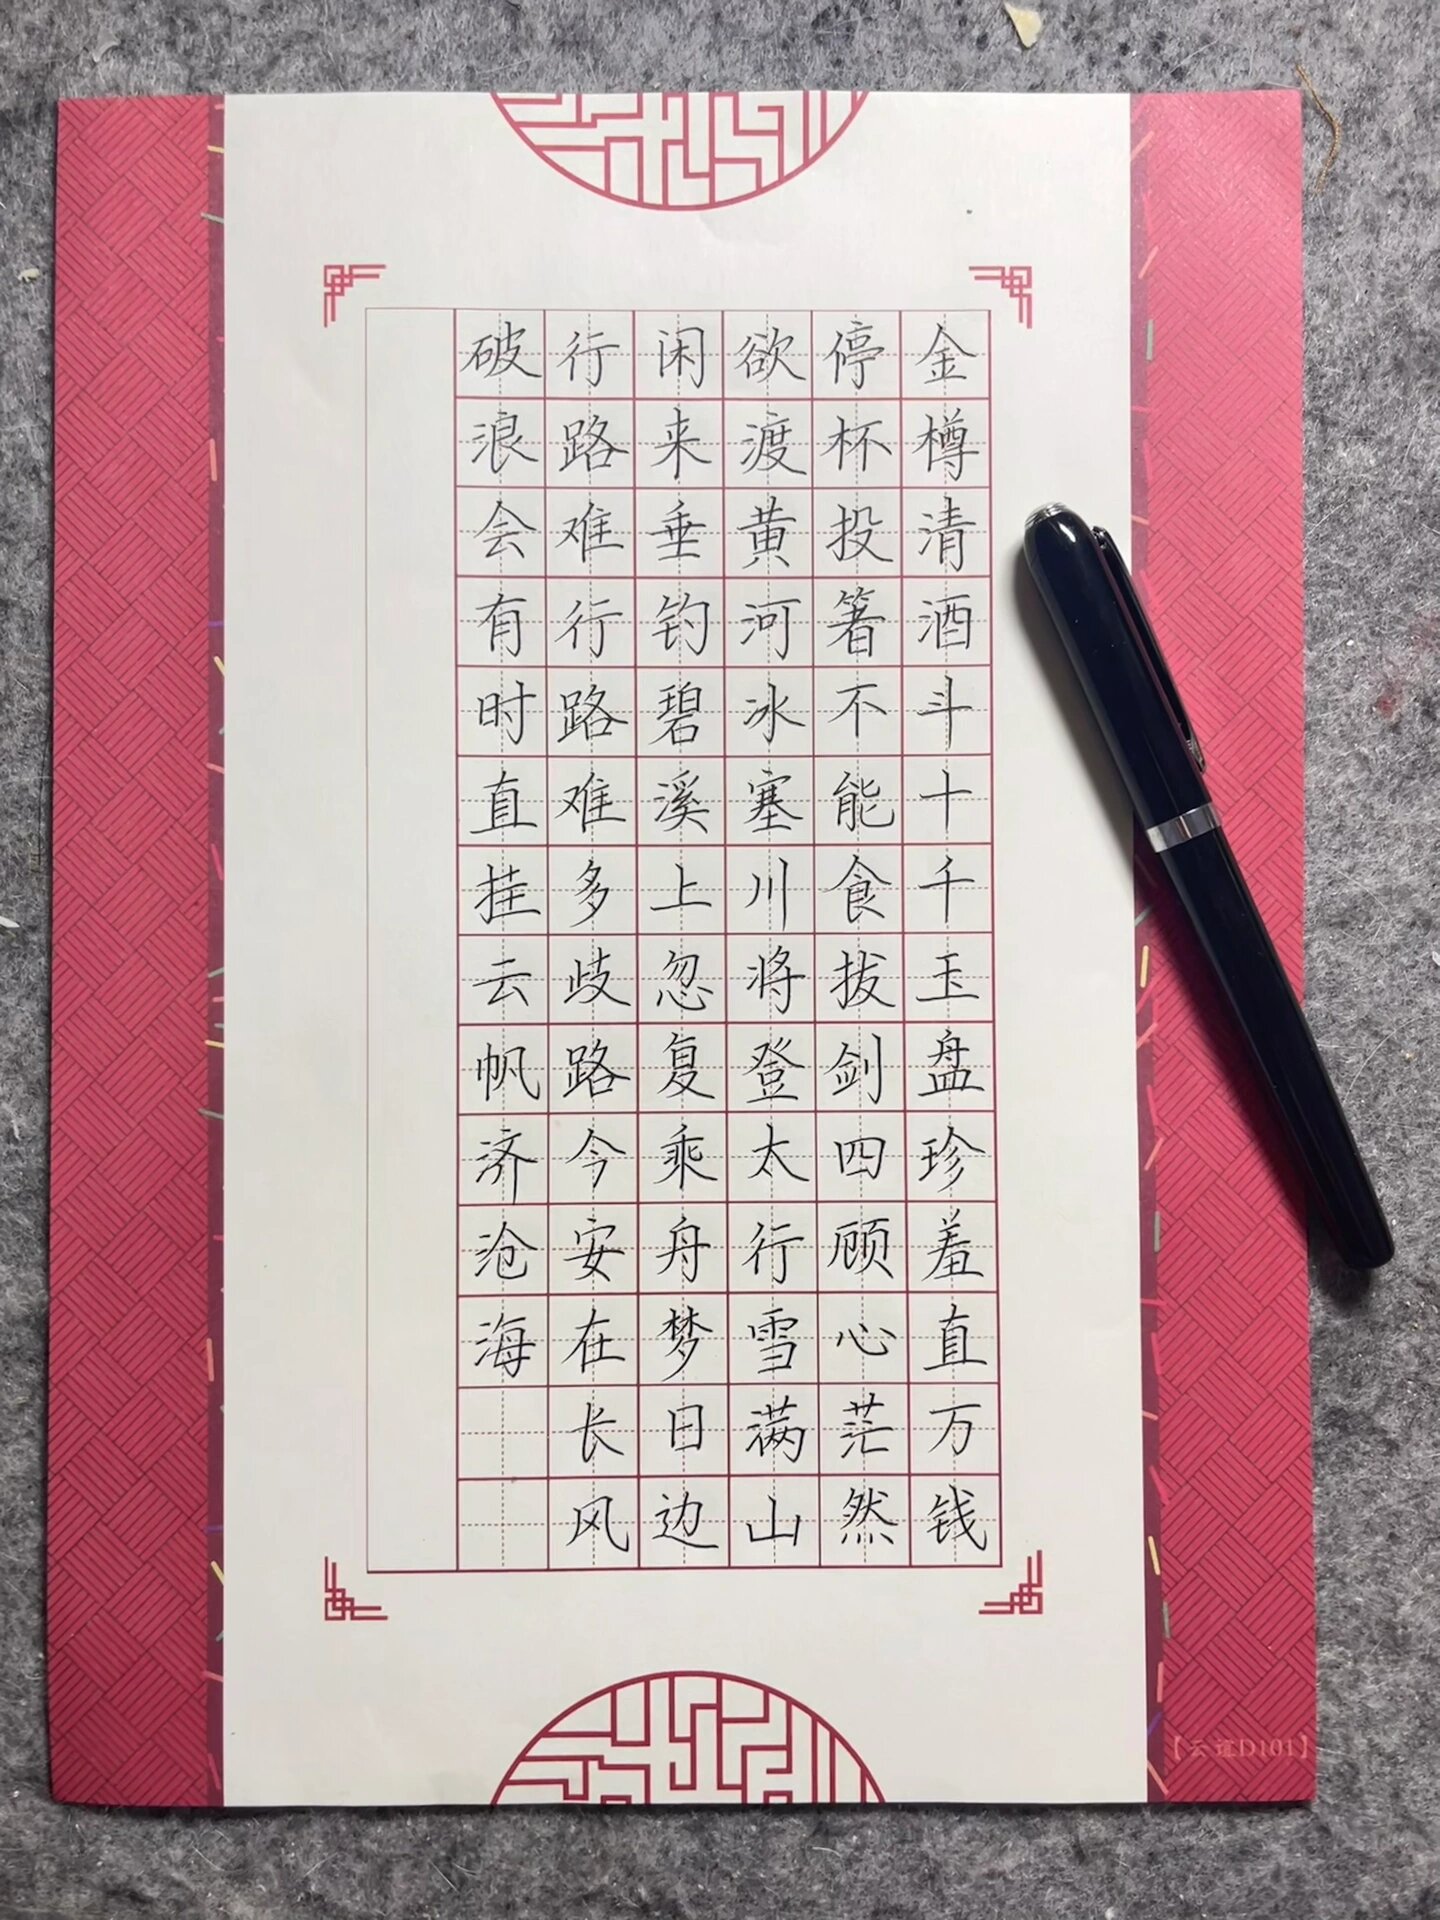 金樽清酒斗十千玉盘珍羞直万钱
停杯投箸不能食拔剑四顾心茫然
欲渡黄河冰塞川将登太行雪满山
闲来垂钓碧溪上忽复乘舟梦日边
行路难行路难多歧路今安在长风
破浪会有时直挂云帆济沧海
【云谊D101】